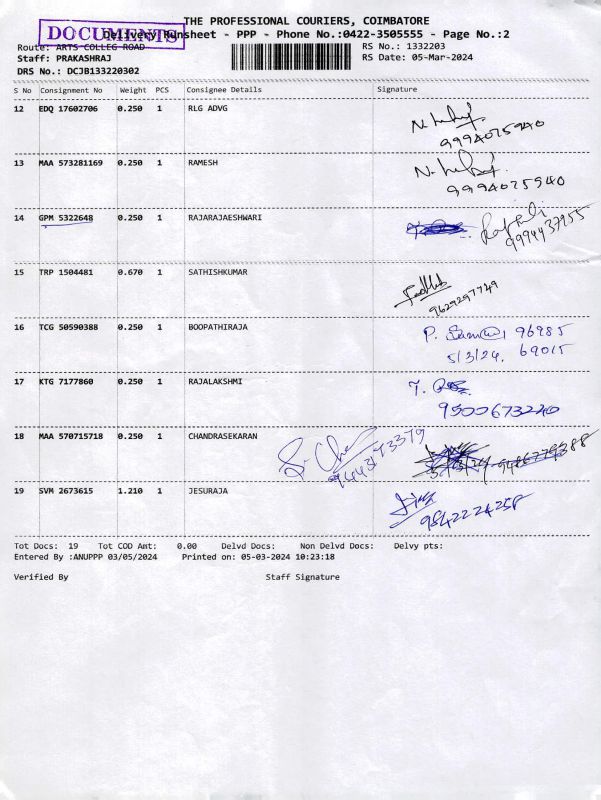 THE PROFESSIONAL COURIERS, COIMBATORE
DOCUMENTS
Delivery Runsheet - PPP - Phone No.:0422-3505555 - Page No.:2
Route: ARTS COLLEG ROAD RS No.: 1332203
Staff: PRAKASHRAJ RS Date: 05-Mar-2024
DRS No.: DCJB133220302
S No Consignment No Weight PCS Consignee Details Signature
12 EDQ 17602706 0.250 1 RLG ADVG
9994075940
13 MAA 573281169 0.250 1 RAMESH
9994075940
14 GPM 5322648 0.250 1 RAJARAJAESHWARI
9994437955
15 TRP 1504481 0.670 1 SATHISHKUMAR
9629297749
16 TCG 50590388 0.250 1 BOOPATHIRAJA
P. 96985
5/3/24. 69015
17 KTG 7177860 0.250 1 RAJALAKSHMI
9500673220
18 MAA 570715718 0.250 1 CHANDRASEKARAN
9443173379
19 SVM 2673615 1.210 1 JESURAJA
9842224258
Tot Docs: 19 Tot COD Amt: 0.00 Delvd Docs: Non Delvd Docs: Delvy pts:
Entered By :ANUPPP 03/05/2024 Printed on: 05-03-2024 10:23:18
Verified By Staff Signature